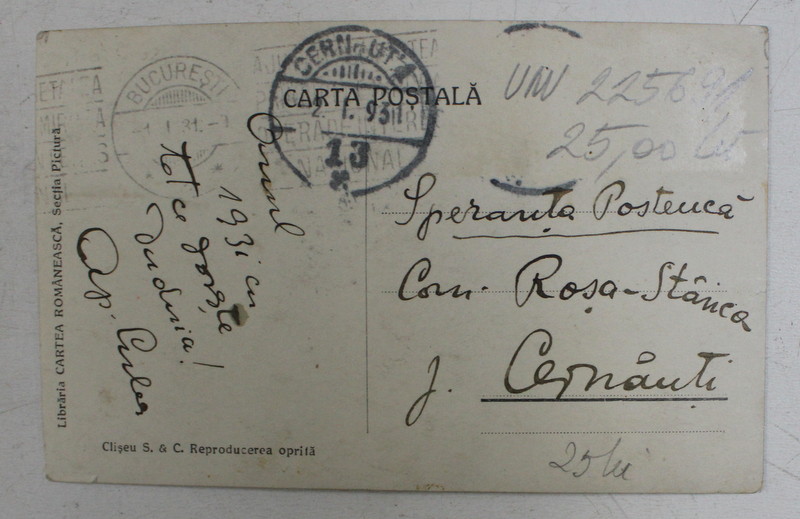 CARTA POȘTALĂ
BUCUREȘTI
1. I 31.
CERNAUTI
2. I. 931
13
225691
25,00 lei
Anul
1931 cu
tot ce dorește
duduia!
Speranța Posteucă
Com. Roșa-Stânca
j. Cernăuți
25 lei
Librăria CARTEA ROMÂNEASCĂ, Secția Pictură
Clișeu S. & C. Reproducerea oprită